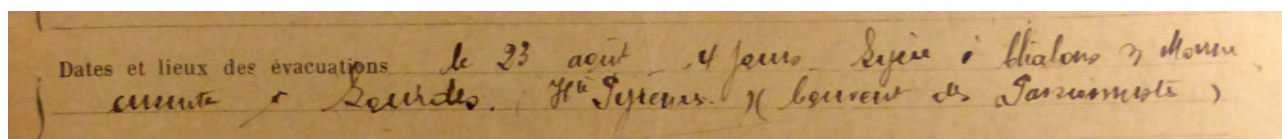 Dates et lieux des évacuations le 23 août - 4 jours Lycée à Chalons s Marne
ensuite à Lourdes. (Htes Pyrénées) (Couvent des Passionnistes)